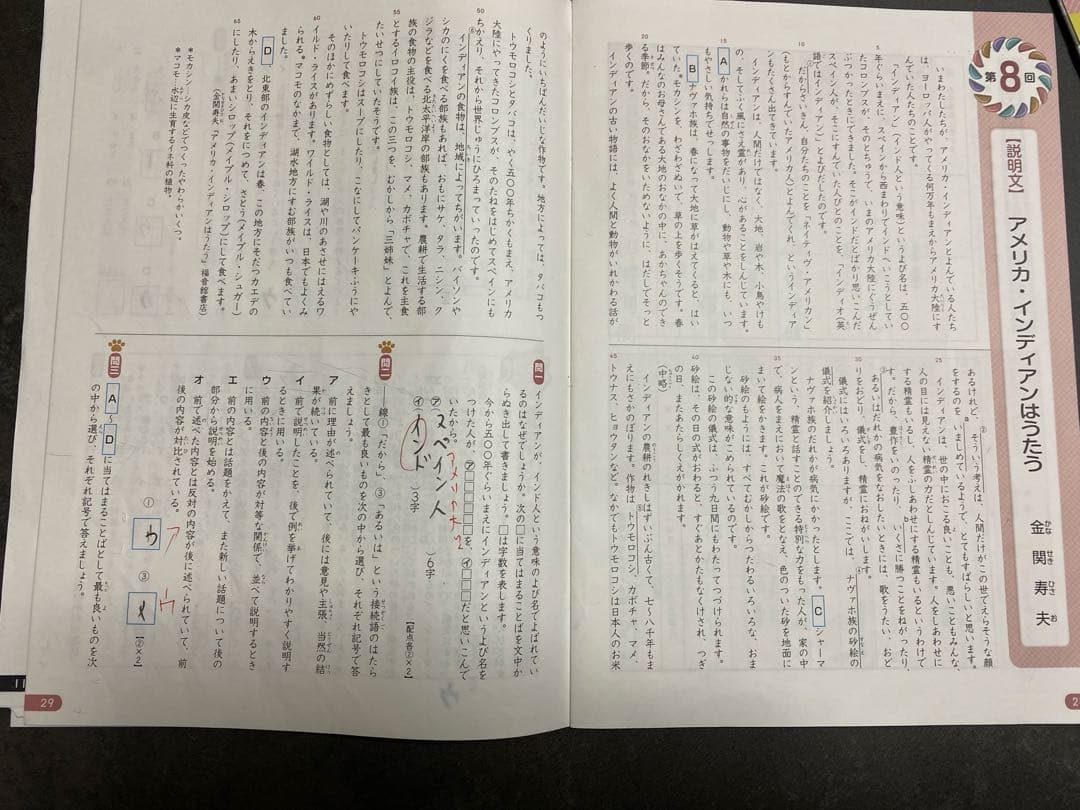 第8回
【説明文】
アメリカ・インディアンはうたう
金関寿夫
かな せき ひさ お
いまわたしたちが、アメリカ・インディアンとよんでいる人たち
は、ヨーロッパ人がやってくる何万年もまえからアメリカ大陸にす
んでいた人たちのことです。
「インディアン」（インド人という意味）というよび名は、五〇〇
年ぐらいまえに、スペインから西まわりでインドへいこうとしてい
たコロンブスが、そのとちゅうで、いまのアメリカ大陸にぐうぜん
ぶつかったときにできました。そこがインドだとばかり思いこんだ
スペイン人が、そこにすんでいた人びとのことを、「インディオ（英
語ではインディアン）」とよびだしたのです。
①だからさいきん、自分たちのことを「ネイティヴ・アメリカン」
（もとからすんでいたアメリカ人）とよんでくれ、というインディア
ンもたくさん出てきています。
インディアンは、人間だけではなく、大地、岩や木、小鳥やけも
の、そしてふく風にさえ霊があり、心があることをしんじています。
A かれらは自然の事物をだいじにし、動物や草や木にも、いつ
もやさしい気持ちでせっします。
B ナヴァホ族は、春になって大地に草がはえてくると、はい
ていた。モカシンを、わざわざぬいで、草の上を歩くそうです。春
はみんなのお母さんである大地のおなかの中に、あかちゃんのでき
る季節。だから、そのおなかをいためないように、はだしでそっと
歩くのです。
インディアンの古い物語には、よく人間と動物がいれかわる話が
5
10
15
20
あるけれど、②そういう考えは、人間だけがこの世でえらそうな顔
をするのを、いましめているようで、とてもすばらしいと思います。
インディアンは、世の中におこる良いことも、悪いこともみんな、
人の目には見えない精霊の力だとしんじています。人をしあわせに
する精霊もいるし、人をふしあわせにする精霊もいるというわけで
す。だから、豊作をいのったり、いくさに勝つことをねがったり、
③あるいはだれかの病気をなおしたいときには、歌をうたい、おど
りをおどり、儀式をし、精霊におねがいします。
儀式にはいろいろありますが、ここでは、④ナヴァホ族の砂絵の
儀式を紹介しましょう。
ナヴァホ族のだれかが病気にかかったとします。 C シャーマ
ンという、精霊と話すことのできる特別な力をもった人が、家の中
で、病人をまえにおいて魔法の歌をとなえ、色のついた砂を地面に
まいて絵をかきます。これが砂絵です。
砂絵のもようには、すべてむかしからつたわるいろいろな、おま
じない的な意味がこめられているのです。
この砂絵の儀式は、ふつう九日間にもわたってつづけられます。
砂絵は、その日の式がおわると、すぐあとかたもなくけされ、つぎ
の日、またあたらしくえがかれます。
（中略）
インディアンの農耕のれきしはずいぶん古くて、七〜八千年もま
えにもさかのぼります。作物は、トウモロコシ、カボチャ、マメ、
トウナス、ヒョウタンなど。なかでもトウモロコシは日本人のお米
25
30
35
40
45
のようにいちばんだいじな作物です。地方によっては、タバコもつ
くりました。
トウモロコシとタバコは、やく五〇〇年ちかくもまえ、アメリカ
大陸にやってきたコロンブスが、そのたねをはじめてスペインにも
ちかえり、それから世界じゅうにひろまっていったのです。
⑥インディアンの食物は、地域によってちがいます。バイソンや
シカのにくを食べる部族もあれば、おもにサケ、タラ、ニシン、ク
ジラなどを食べる北太平洋岸の部族もあります。農耕で生活する部
族の食物の主役は、トウモロコシ、マメ、カボチャで、これを主食
とするイロコイ族は、この三つを、むかしから「三姉妹」とよんで、
たいせつにしていたそうです。
トウモロコシはスープにしたり、こなにしてパンケーキふうにや
いたりして食べます。
そのほかにめずらしい食物としては、湖や川のあさせにはえるワ
イルド・ライスがあります。ワイルド・ライスは、日本でもよくみ
られる。マコモのなかまで、湖水地方にすむ部族がいつも食べてい
ました。
D 、北東部のインディアンは春、この地方にそだつカエデの
木からえきをとり、それをにつめて、さとう（メイプル・シュガー）
にしたり、あまいシロップ（メイプル・シロップ）にして食べます。
（金関寿夫『アメリカ・インディアンはうたう』福音館書店）
＊モカシン…シカ皮などでつくったやわらかいくつ。
＊マコモ…水辺に生育するイネ科の植物。
50
55
60
65
問一 インディアンが、インド人という意味のよび名でよばれてい
るのはなぜでしょうか。次の□に当てはまることばを文中か
らぬき出して書きましょう。□は字数を表します。
今から五〇〇年ぐらいまえにインディアンというよび名を
つけた人が、㋐□□□□□□を、㋑□□□だと思いこんで
いたから。
㋐（スペイン人）6字
アメリカ大陸
㋑（インド）3字
【配点各②×2】
問二 ――線①「だから」、③「あるいは」という接続語のはたら
きとして最も良いものを次の中から選び、それぞれ記号で答
えましょう。
ア 前に理由が述べられていて、後には意見や主張、当然の結
果が続いている。
イ 前で説明したことを、後で例を挙げてわかりやすく説明す
るときに用いる。
ウ 前の内容と後の内容が対等な関係で、並べて説明するとき
に用いる。
エ 前の内容とは話題をかえて、また新しい話題について後の
部分から説明を始める。
オ 前で述べた内容とは反対の内容が後に述べられていて、前
後の内容が対比されている。
① ウ ア
③ イ ウ
【②×2】
問三 A〜Dに当てはまることばとして最も良いものを次
の中から選び、それぞれ記号で答えましょう。
29